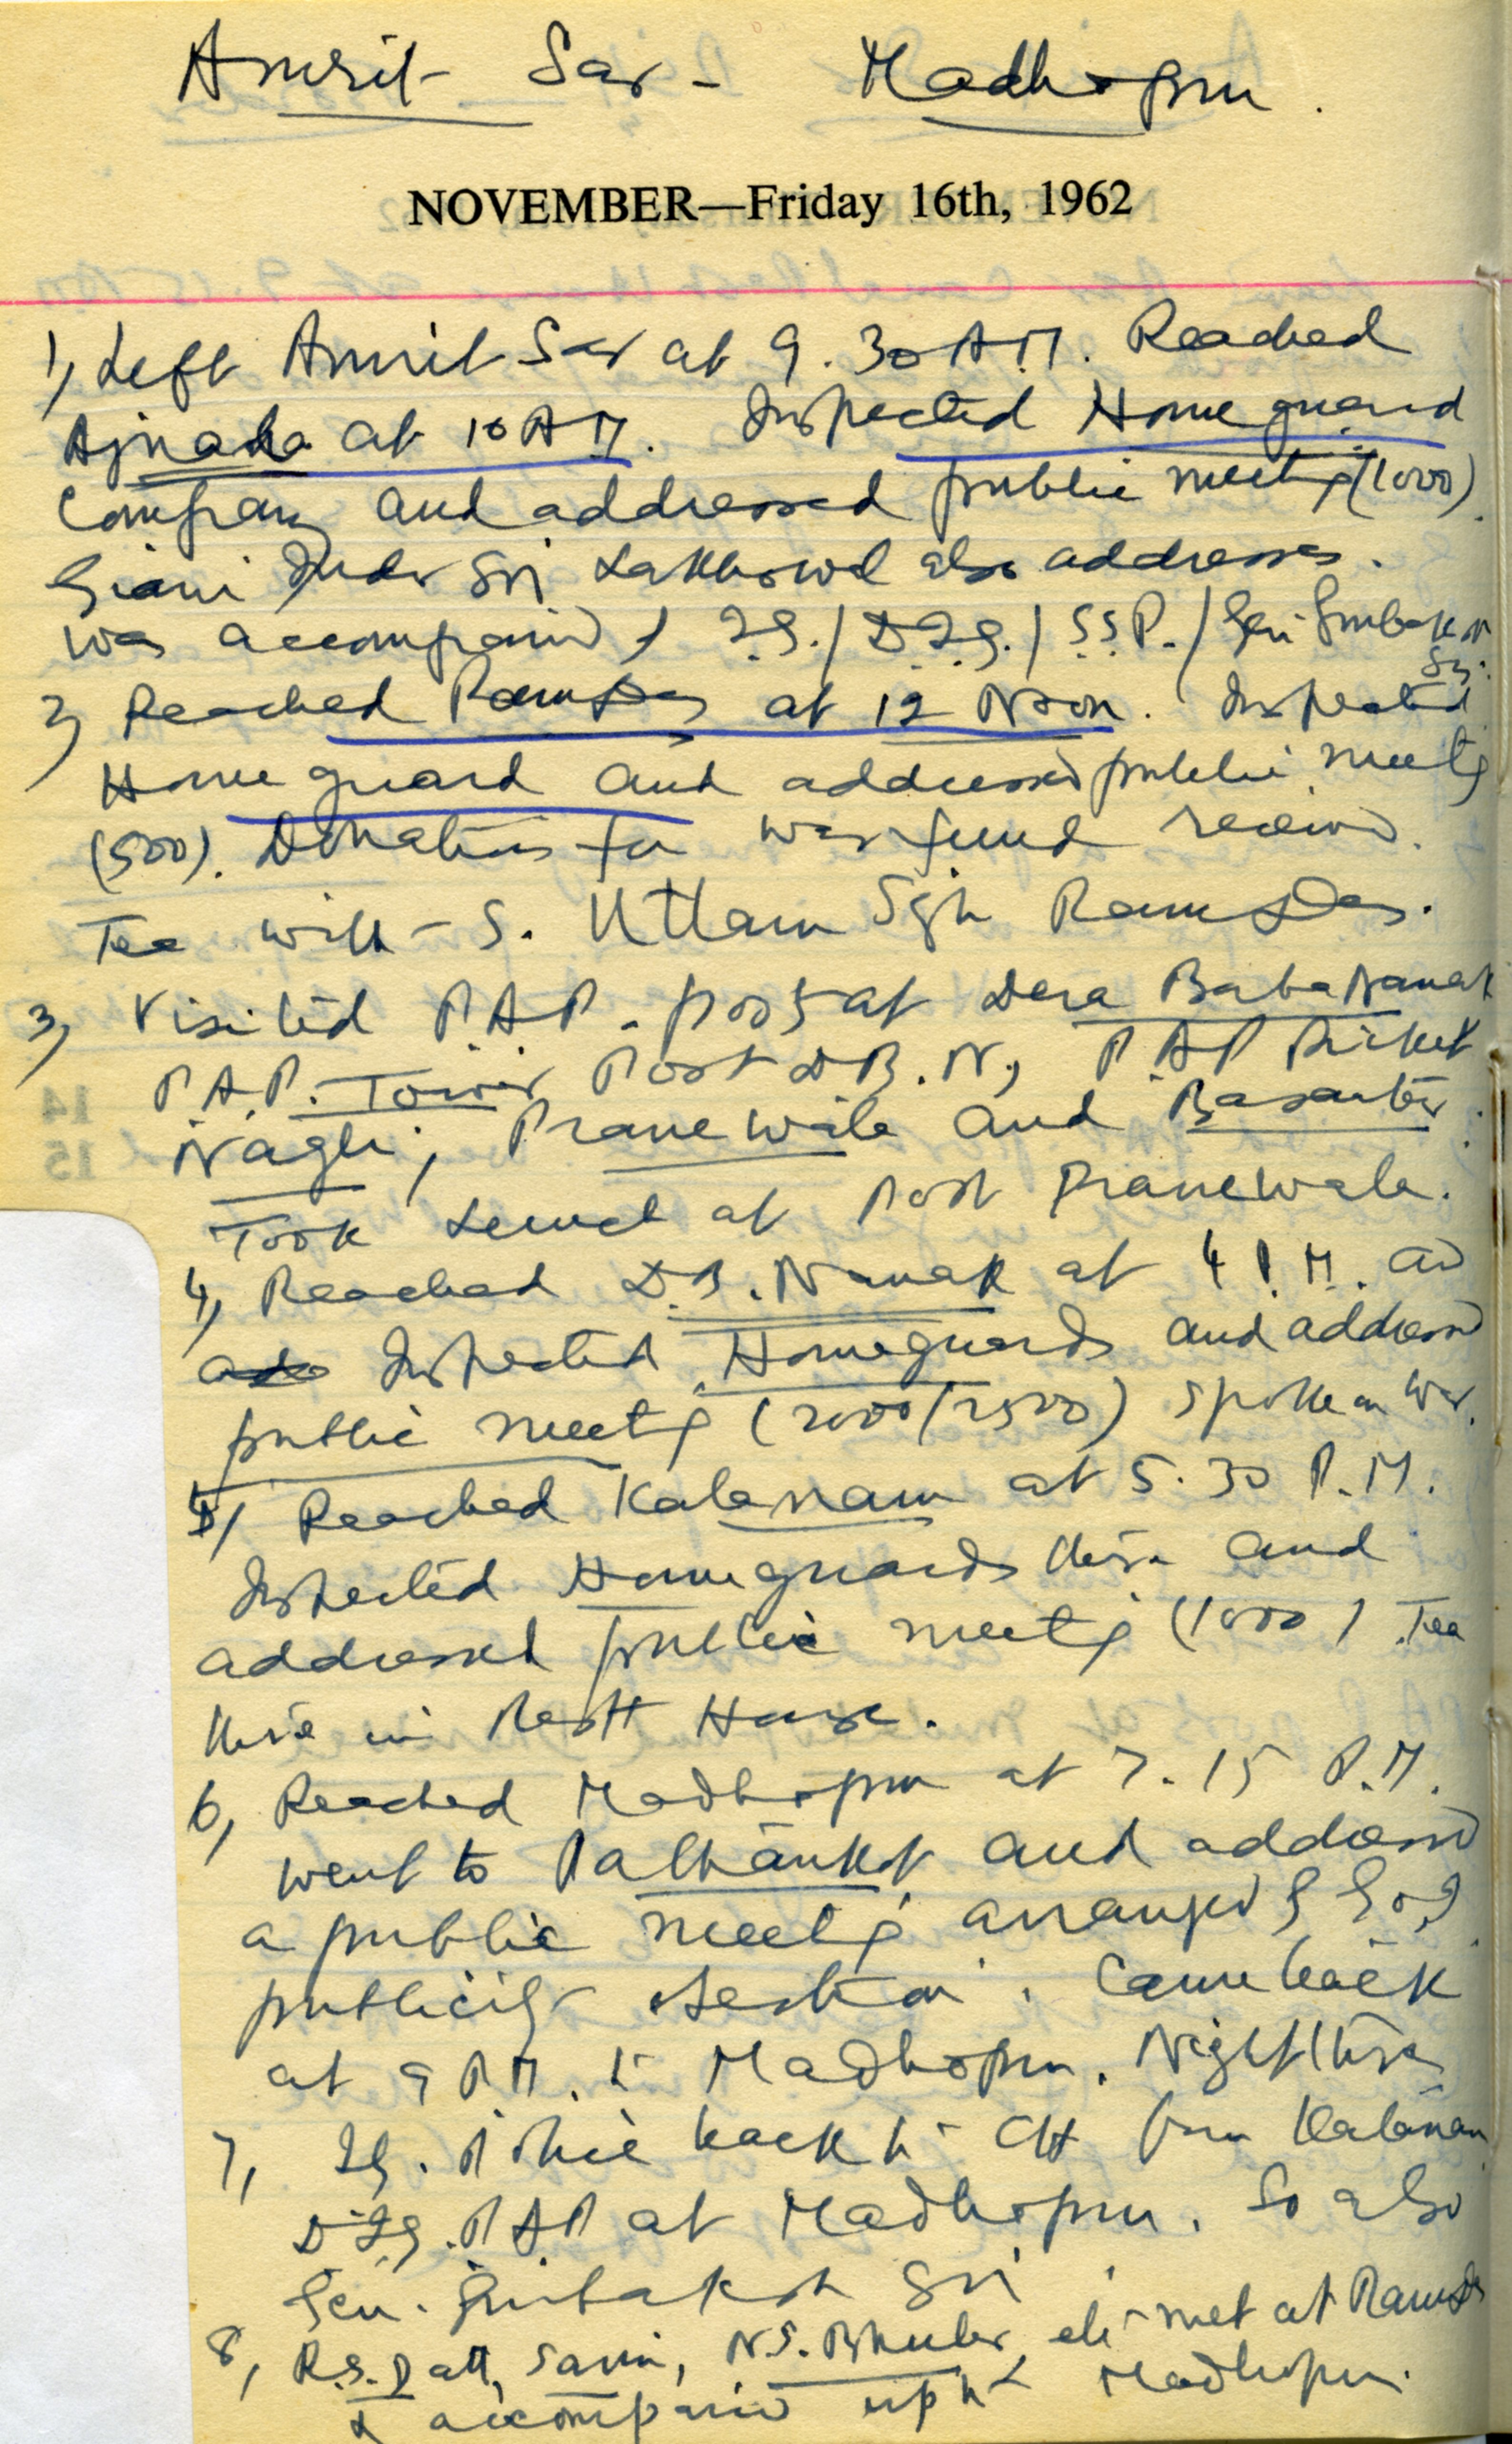 Amrit Sar - Madhopur.
NOVEMBER—Friday 16th, 1962
1, Left Amrit Sar at 9.30 A.M. Reached
Ajnala at 10 A M. Inspected Home guard
Company and addressed public meeting (1000).
Giani Inder Sgh also addresses.
was accompanied I.G./D.I.G./S.S.P./Gen Gurbaksh
Sgh.
2, Reached Ramdas at 12 Noon. Inspected
Home guard and addressed public meeting
(500). Donations for war fund received.
Tea with - S. Uttam Sgh Ramdas.
3, Visited P.A.P. post at Dera Baba Nanak
P.A.P. Tower Post D.B.N, P.A.P Picket
Nagli, Pranewala and Basantar.
Took Lunch at Post Pranewala.
4, Reached D.B. Nanak at 4 P.M. and
Inspected Homeguards and addressed
public meeting (2000/2500) spoke on War.
5, Reached Kalanaur at 5.30 P.M.
Inspected Homeguards there and
addressed public meeting (1000) Tea
there in Rest House.
6, Reached Madhopur at 7.15 P.M.
went to Pathankot and addressed
a public meeting arranged by
publicity section. Came back
at 9 P.M. to Madhopur. Night there
7, I.G. Police back to - CH from Kalanaur
D.I.G. P A P at Madhopur. So also
Gen. Gurbaksh Sgh
8, R.S. Datt, Sarin, N.S. Bhuler, etc met at Ramdas
& accompanied upto Madhopur.